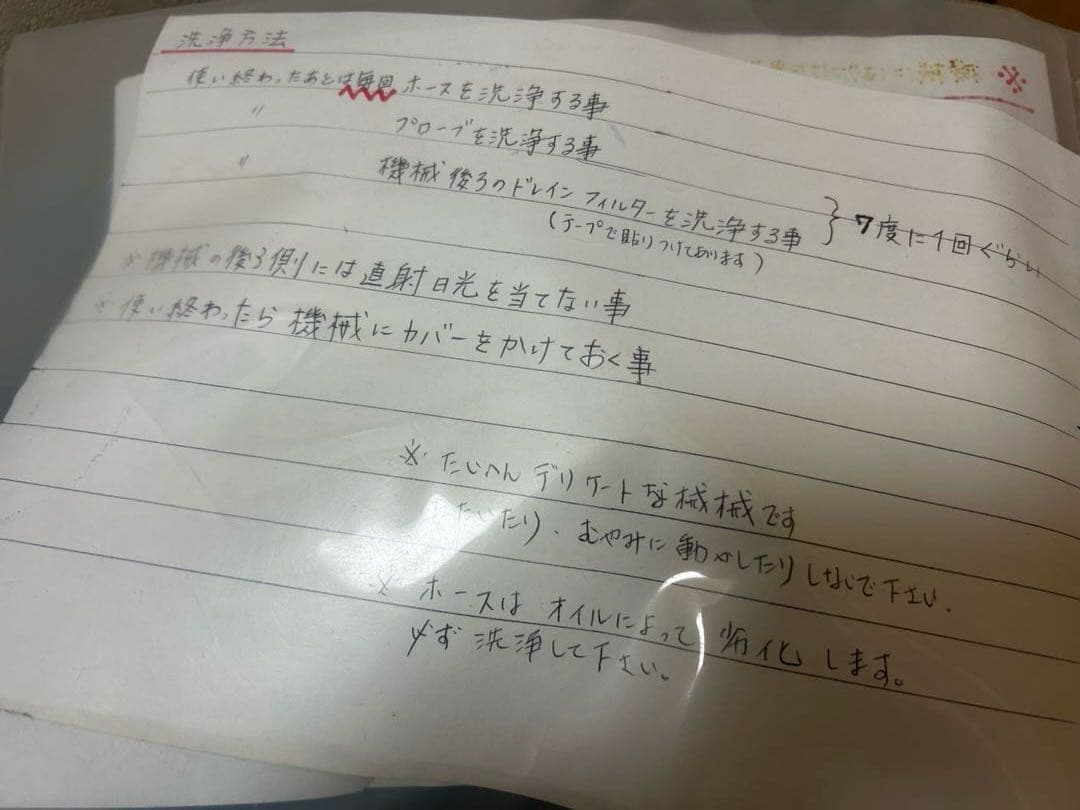 洗浄方法
使い終わったあとは毎回 ホースを洗浄する事
〃 プローブを洗浄する事
〃 機械後ろのドレインフィルターを洗浄する事
(テープで貼りつけてあります)
7度に1回ぐらい
※機械の後ろ側には直射日光を当てない事
※使い終わったら機械にカバーをかけておく事
※たいへんデリケートな械械です
たいたり、むやみに動かしたりしないで下さい.
※ ホースは オイルによって 劣化 します。
必ず 洗浄して下さい。